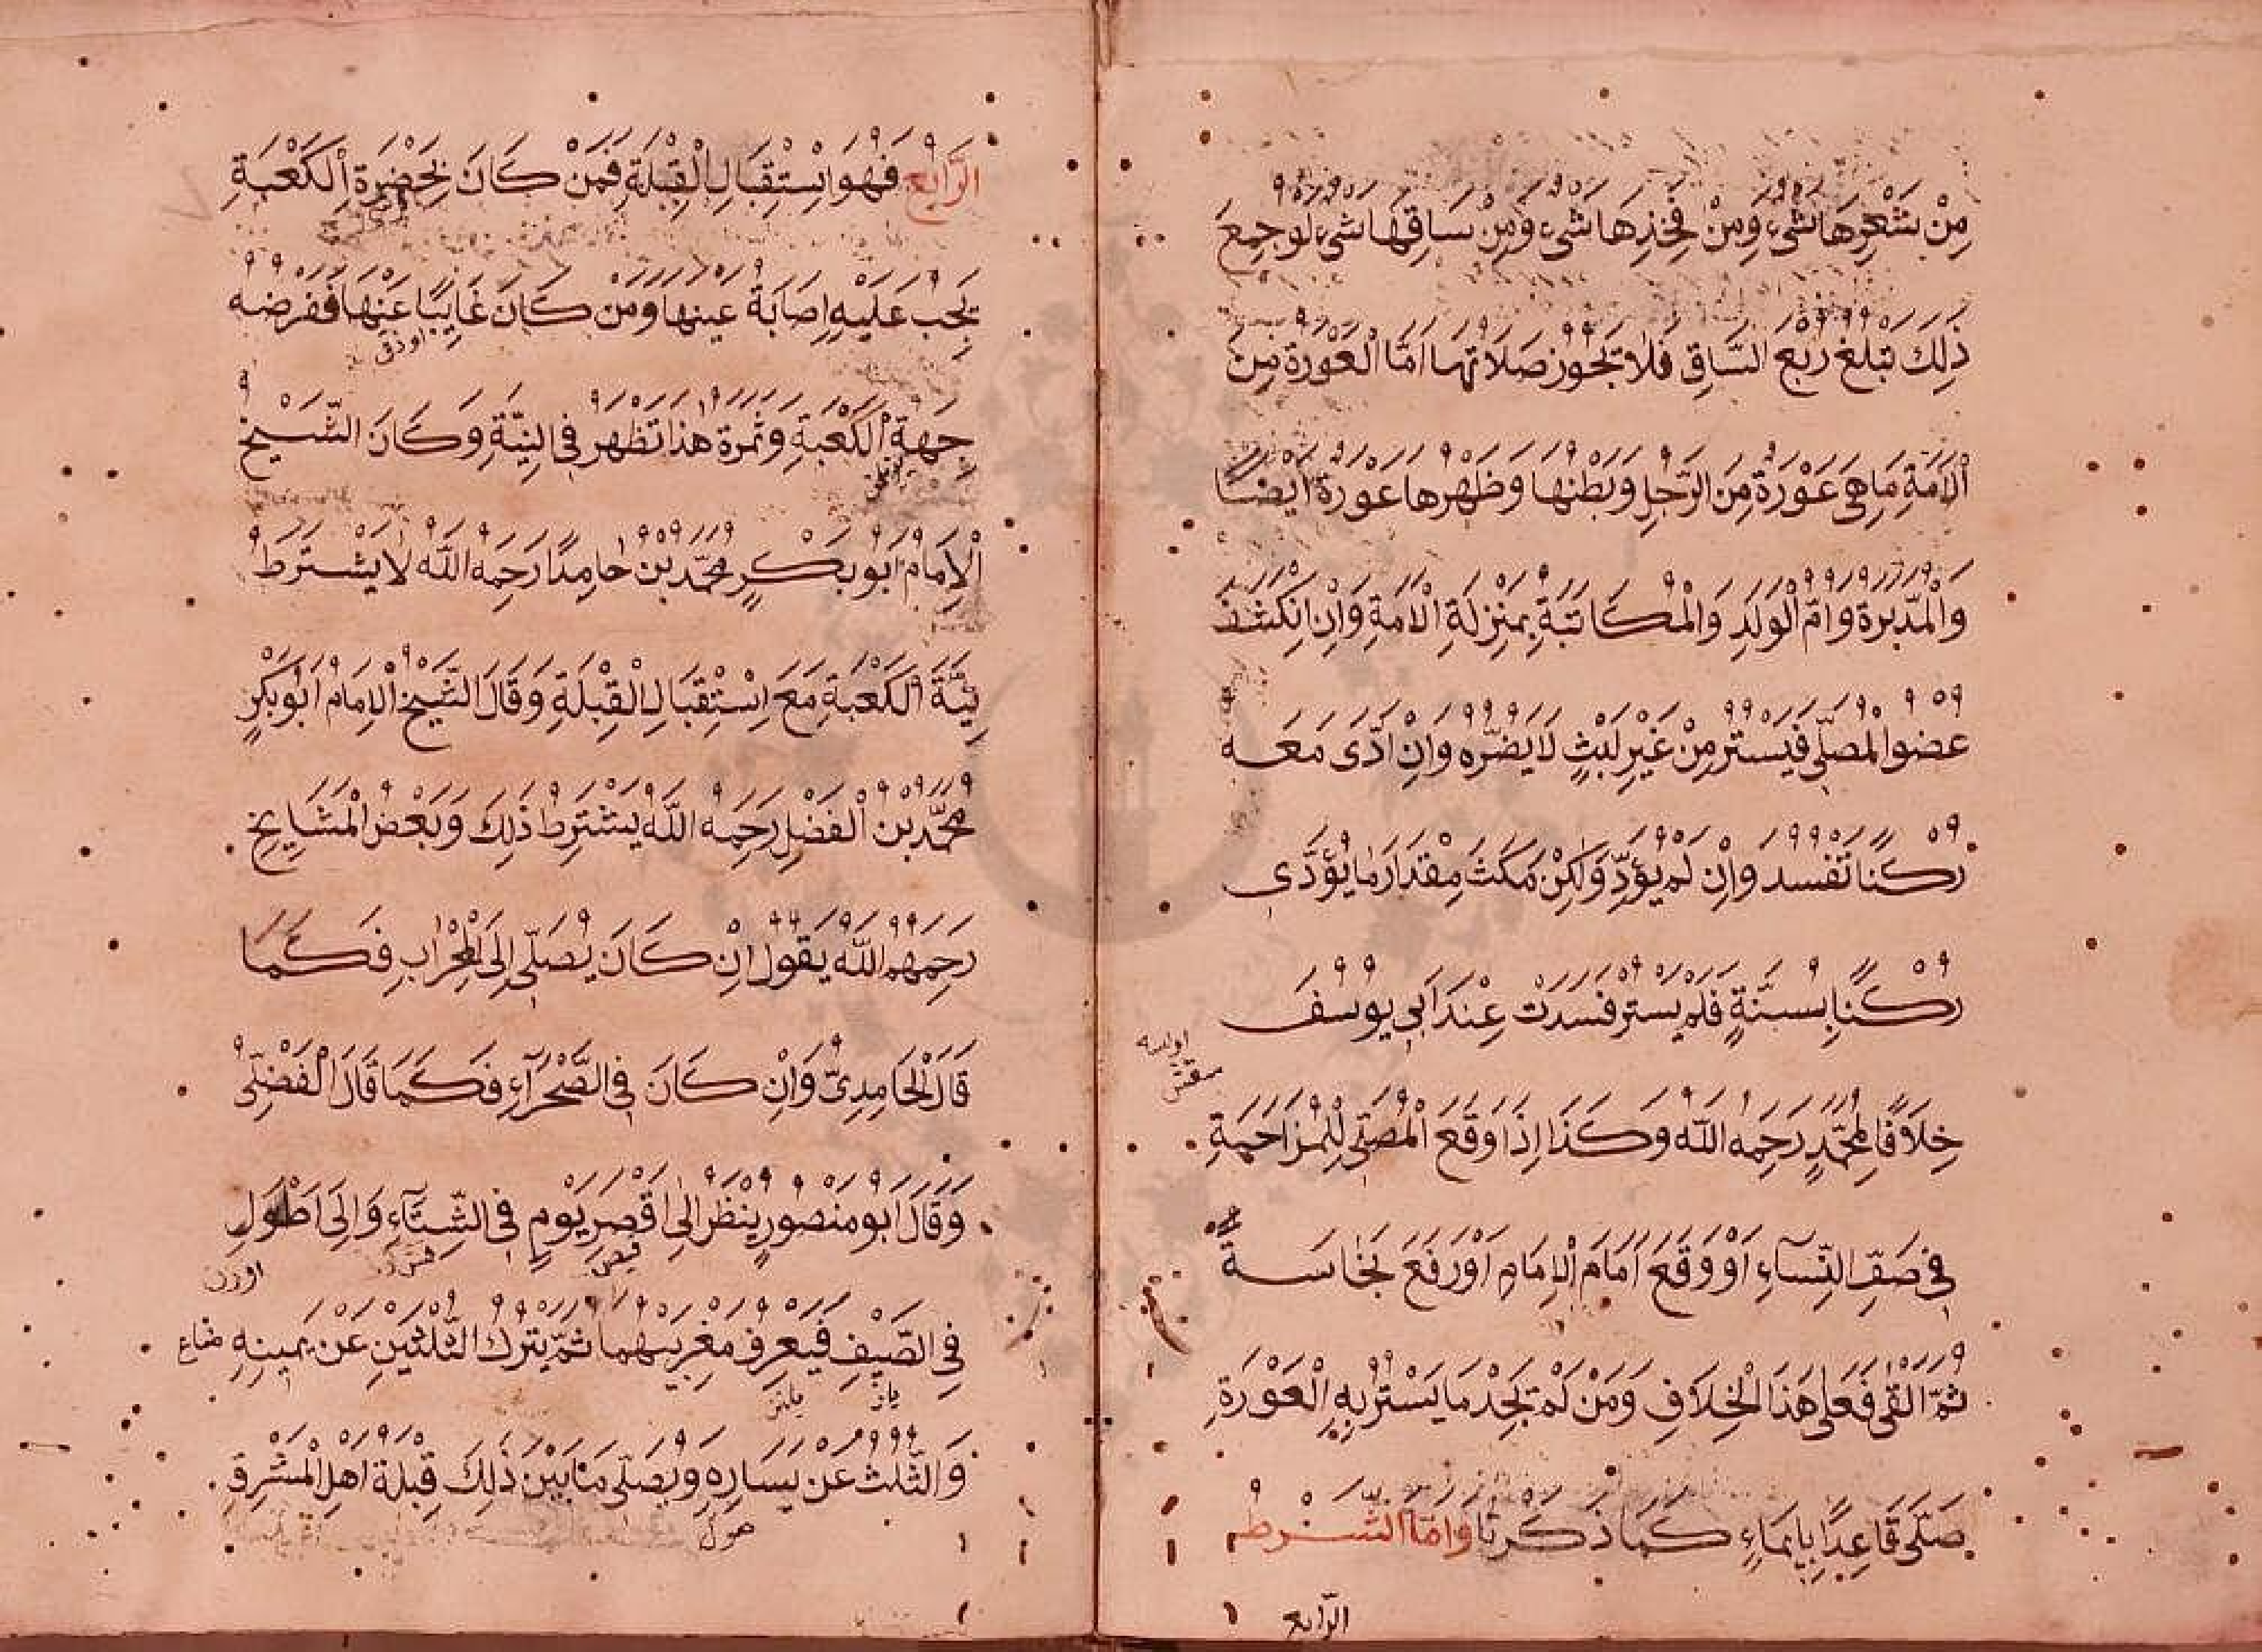 مِنْ شَعْرِهَا شَىْءٌ وَمِنْ فَخِذِهَا شَىْءٌ وَمِنْ سَاقِهَا شَىْءٌ لَوْ جُمِعَ
ذَلِكَ تَبْلُغُ رُبْعَ السَّاقِ فَلَا تَجُوزُ صَلَاتُهَا اَمَّا الْعَوْرَةُ مِنَ
الْاَمَةِ مَا هِىَ عَوْرَةٌ مِنَ الرَّجُلِ وَبَطْنُهَا وَظَهْرُهَا عَوْرَةٌ اَيْضًا
وَالْمُدَبَّرَةُ وَاُمُّ الْوَلَدِ وَالْمُكَاتَبَةُ بِمَنْزِلَةِ الْاَمَةِ وَاِنِ انْكَشَفَ
عُضْوُ الْمُصَلِّى فَيَسْتُرُ مِنْ غَيْرِ لَبْثٍ لَا يَضُرُّهُ وَاِنْ اَدَّى مَعَهُ
رُكْنًا تَفْسُدُ وَاِنْ لَمْ يُؤَدِّ وَلَكِنْ مَكَثَ مِقْدَارَ مَا يُؤَدِّى
رُكْنًا بِسُنَّةٍ فَلَمْ يَسْتُرْ فَسَدَتْ عِنْدَ اَبِى يُوسُفَ
خِلَافًا لِمُحَمَّدٍ رَحِمَهُ اللّٰهُ وَكَذَا اِذَا وَقَعَ الْمُصَلِّى لِلْمُزَاحَمَةِ
فِى صَفِّ النِّسَآءِ اَوْ وَقَعَ اَمَامَ الْاِمَامِ اَوْ رَفَعَ نَجَاسَةً
ثُمَّ اَلْقَى فَعَلَى هَذَا الْخِلَافِ وَمَنْ لَمْ يَجِدْ مَا يَسْتُرُ بِهِ الْعَوْرَةَ
صَلَّى قَاعِدًا بِاِيمَاءٍ كَمَا ذَكَرْنَا وَاَمَّا الشَّرْطُ
الرَّابع
الرَّابِعُ فَهُوَ اِسْتِقْبَالُ الْقِبْلَةِ فَمَنْ كَانَ بِحَضْرَةِ الْكَعْبَةِ
يَجِبُ عَلَيْهِ اِصَابَةُ عَيْنِهَا وَمَنْ كَانَ غَايِبًا عَنْهَا فَفَرْضُهُ
جِهَةُ الْكَعْبَةِ وَثَمَرَةُ هَذَا تَظْهَرُ فِى النِّيَّةِ وَكَانَ الشَّيْخُ
الْاِمَامُ اَبُو بَكْرٍ مُحَمَّدُ بْنُ حَامِدًا رَحِمَهُ اللّٰهُ لَا يَشْتَرِطُ
نِيَّةَ الْكَعْبَةِ مَعَ اِسْتِقْبَالِ الْقِبْلَةِ وَقَالَ الشَّيْخُ الْاِمَامُ اَبُو بَكْرٍ
مُحَمَّدُ بْنُ الْفَضْلِ رَحِمَهُ اللّٰهُ يَشْتَرِطُ ذَلِكَ وَبَعْضُ الْمَشَايِخِ
رَحِمَهُمُ اللّٰهُ يَقُولُ اِنْ كَانَ يُصَلِّى اِلَى الْمِحْرَابِ فَكَمَا
قَالَ الْحَامِدِىُّ وَاِنْ كَانَ فِى الصَّحْرَآءِ فَكَمَا قَالَ الْفَضْلِىُّ
وَقَالَ اَبُو مَنْصُورٍ يَنْظُرُ اِلَى اَقْصَرِ يَوْمٍ فِى الشِّتَآءِ وَاِلَى اَطْوَلِ
فِى الصَّيْفِ فَيَعْرِفُ مَغْرِبَيْهِمَا ثُمَّ يَتْرُكُ الثُّلُثَيْنِ عَنْ يَمِينِهِ
وَالثُّلُثَ عَنْ يَسَارِهِ وَيُصَلِّى مَا بَيْنَ ذَلِكَ قِبْلَةُ اَهْلِ الْمَشْرِقِ